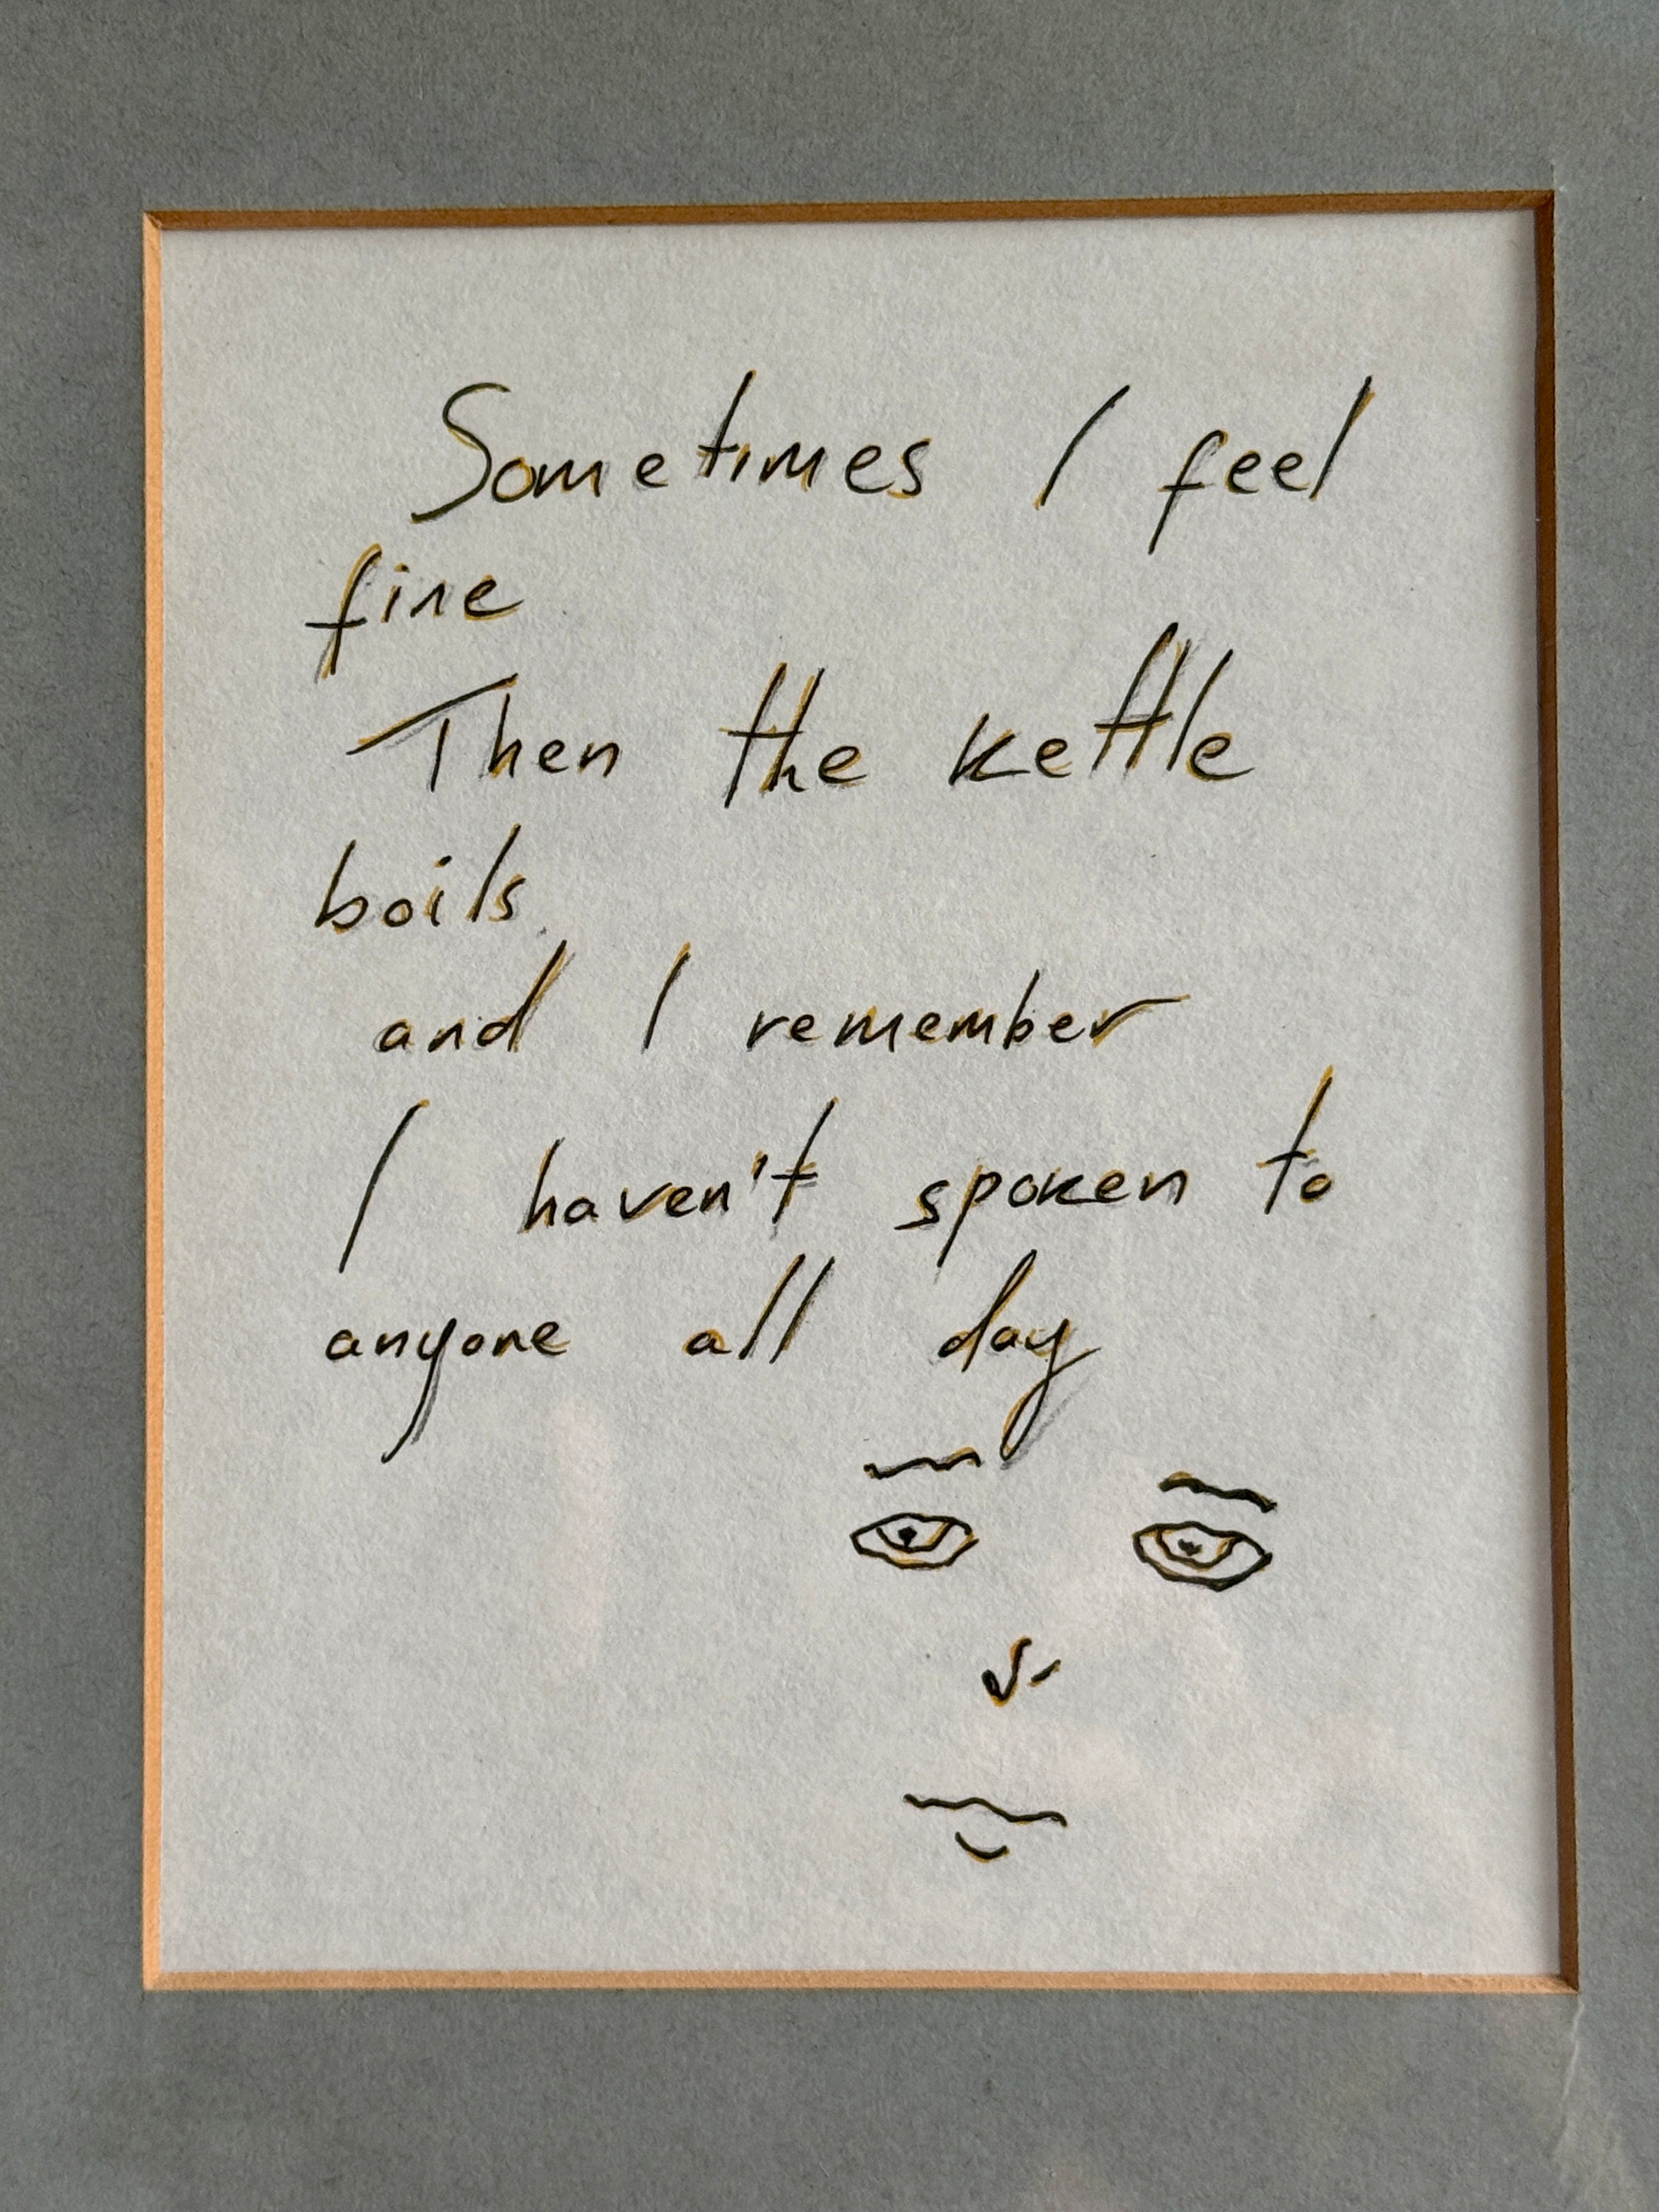 Sometimes I feel
fine
Then the kettle
boils
and I remember
I haven't spoken to
anyone all day